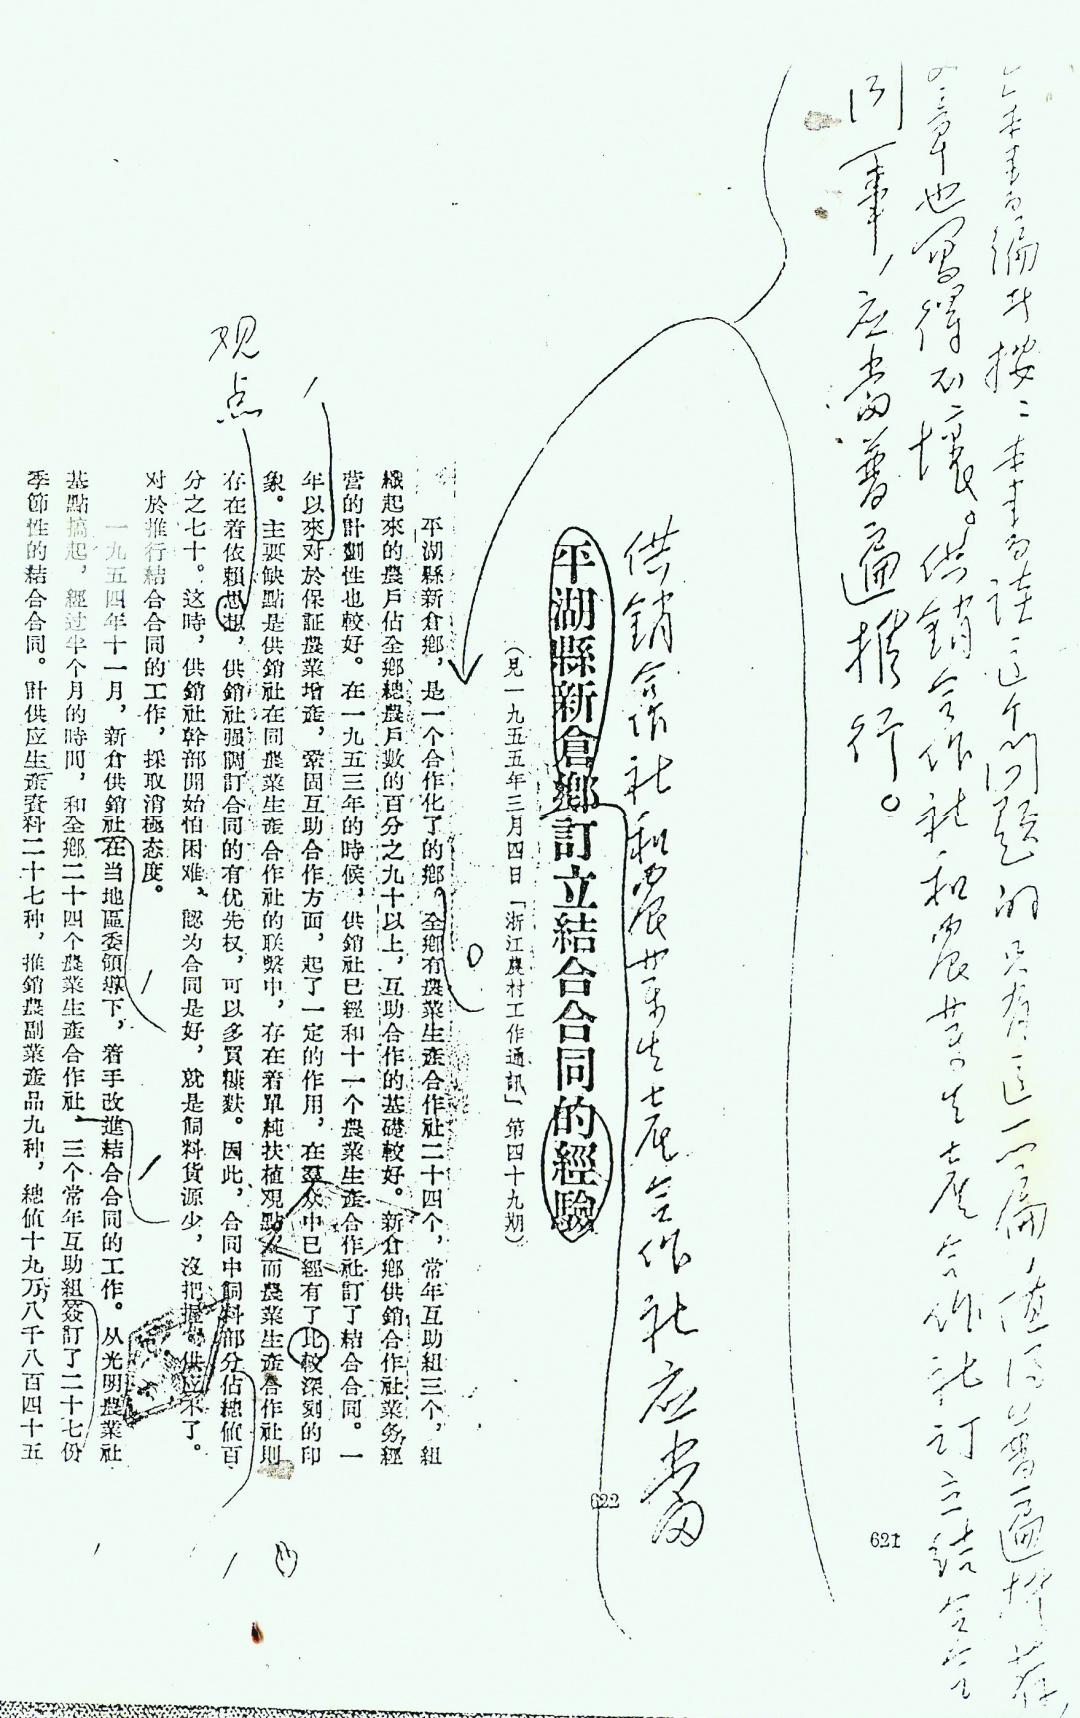 本书编者按：本书谈这个问题的只有这一篇，值得普遍推荐，
文章也写得不壞。供销合作社和農業生产合作社订立結合合
同一事，应當普遍推行。
621
供銷合作社和農業生产合作社应當
622
平湖縣新倉鄉訂立結合合同的經驗
（見一九五五年三月四日「浙江農村工作通訊」第四十九期）
平湖縣新倉鄉，是一个合作化了的鄉。全鄉有農業生產合作社二十四个，常年互助組三个，組
織起來的農戶佔全鄉總農戶數的百分之九十以上，互助合作的基礎較好。新倉鄉供銷合作社業务經
营的計劃性也較好。在一九五三年的時候，供銷社已經和十一个農業生產合作社訂了結合合同。一
年以來，对於保証農業增產，鞏固互助合作方面，起了一定的作用，在羣众中已經有了比較深刻的印
象。主要缺點是供銷社在同農業生產合作社的联繫中，存在着單純扶植观點，而農業生產合作社則
存在着依賴思想，供銷社强調訂合同的有优先权，可以多買糠麩。因此，合同中飼料部分佔總值百
分之七十。这時，供銷社幹部開始怕困难，認为合同是好，就是飼料貨源少，沒把握，供应不了。
对於推行結合合同的工作，採取消極态度。
一九五四年十一月，新倉供銷社在当地區委領導下，着手改進結合合同的工作。从光明農業社
基點搞起，經过半个月的時間，和全鄉二十四个農業生產合作社、三个常年互助組簽訂了二十七份
季節性的結合合同。計供应生產資料二十七种，推銷農副業產品九种，總值十九万八千八百四十五
观点